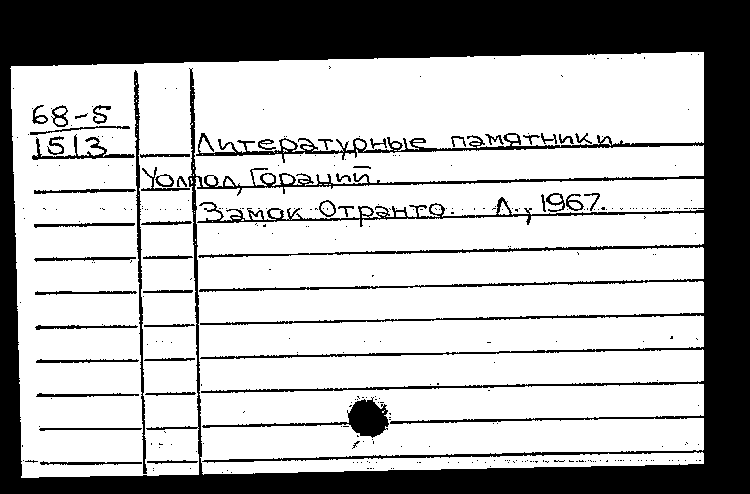 68-5
1513
Литературные памятники.
Уолпол, Гораций.
Замок Отранто. Л., 1967.